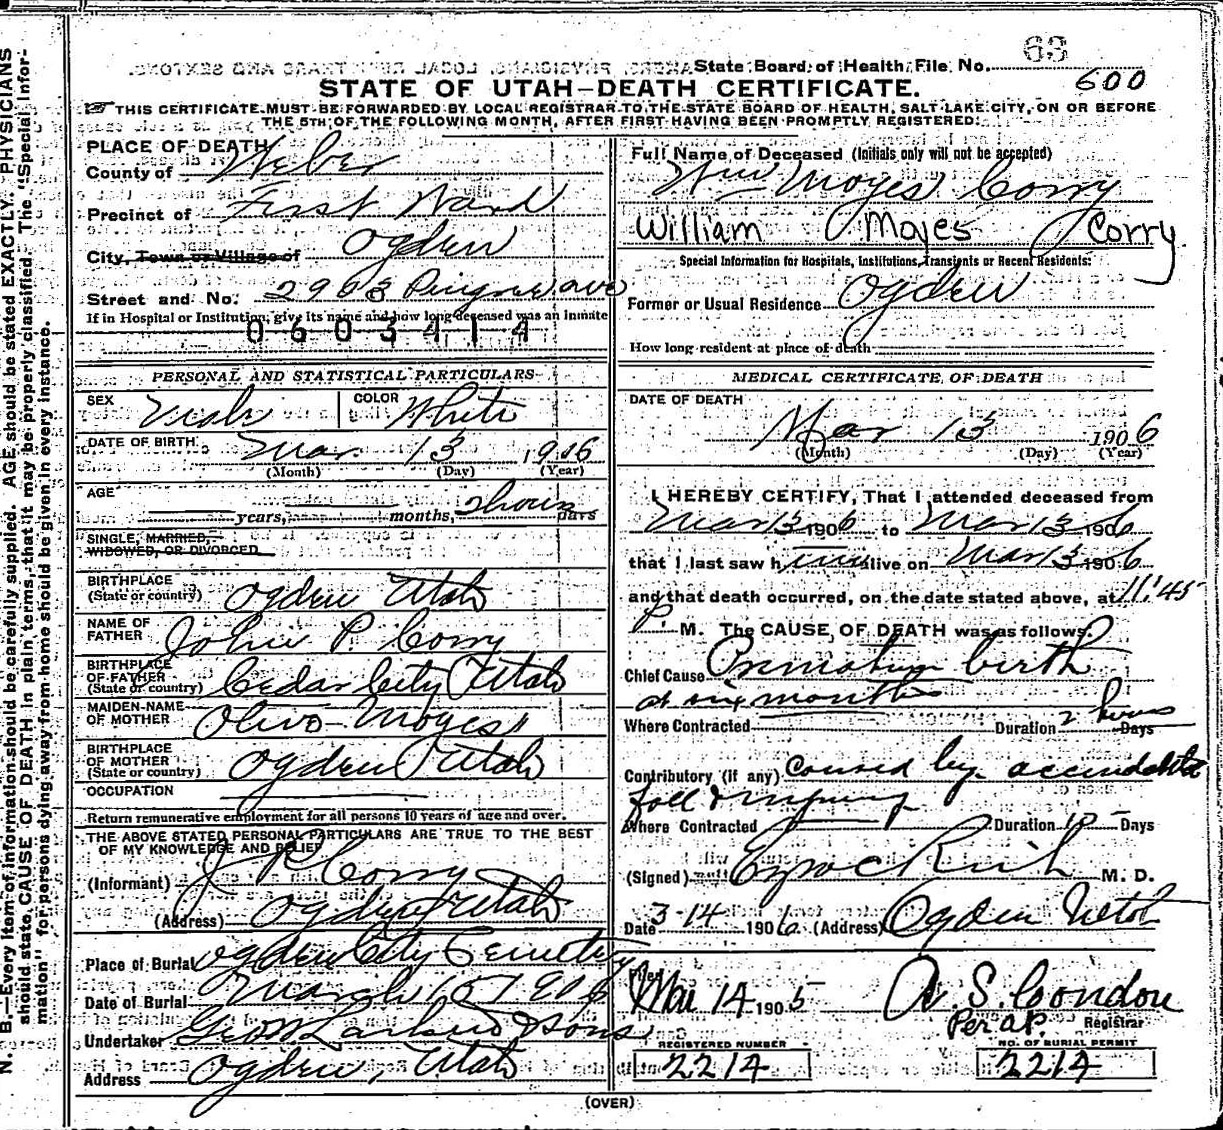 State Board of Health File No. 63
600
STATE OF UTAH—DEATH CERTIFICATE.
THIS CERTIFICATE MUST BE FORWARDED BY LOCAL REGISTRAR TO THE STATE BOARD OF HEALTH, SALT LAKE CITY, ON OR BEFORE
THE 5TH OF THE FOLLOWING MONTH, AFTER FIRST HAVING BEEN PROMPTLY REGISTERED:
PLACE OF DEATH
County of Weber
Precinct of First Ward
City, Town or Village of Ogden
Street and No. 2963 Pingree ave
If in Hospital or Institution, give its name and how long deceased was an inmate
0603414
PERSONAL AND STATISTICAL PARTICULARS
SEX Male COLOR White
DATE OF BIRTH Mar 13 1906
(Month) (Day) (Year)
AGE
years, months, 2 hours days
SINGLE, MARRIED,
WIDOWED, OR DIVORCED
BIRTHPLACE
(State or country) Ogden Utah
NAME OF
FATHER John P. Corry
BIRTHPLACE
OF FATHER
(State or country) Cedar City Utah
MAIDEN NAME
OF MOTHER Olive Moyes
BIRTHPLACE
OF MOTHER
(State or country) Ogden Utah
OCCUPATION
Return remunerative employment for all persons 10 years of age and over.
THE ABOVE STATED PERSONAL PARTICULARS ARE TRUE TO THE BEST
OF MY KNOWLEDGE AND BELIEF
(Informant) J P Corry
(Address) Ogden Utah
Place of Burial Ogden City Cemetery
Date of Burial March 15 1906
Undertaker Geo W Larkin & Sons
Address Ogden, Utah
Full Name of Deceased (Initials only will not be accepted)
Wm Moyes Corry
William Moyes Corry
Special Information for Hospitals, Institutions, Transients or Recent Residents:
Former or Usual Residence Ogden
How long resident at place of death
MEDICAL CERTIFICATE OF DEATH
DATE OF DEATH
Mar 13 1906
(Month) (Day) (Year)
I HEREBY CERTIFY, That I attended deceased from
Mar 13 1906 to Mar 13 1906
that I last saw him alive on Mar 13 1906
and that death occurred, on the date stated above, at 11:45
P. M. The CAUSE OF DEATH was as follows:
Chief Cause Premature birth
at six months
Where Contracted Duration 2 hours Days
Contributory (if any) Caused by accidental
fall & injury
Where Contracted Duration 10 Days
(Signed) M. D.
Date 3-14 1906 (Address) Ogden Utah
Filed
Mar 14 1905 A. S. Condon
Per A.P. Registrar
REGISTERED NUMBER
2214
NO. OF BURIAL PERMIT
2214
(OVER)
N. B.—Every item of information should be carefully supplied. AGE should be stated EXACTLY. PHYSICIANS
should state CAUSE OF DEATH in plain terms, that it may be properly classified. The "Special Infor-
mation" for persons dying away from home should be given in every instance.